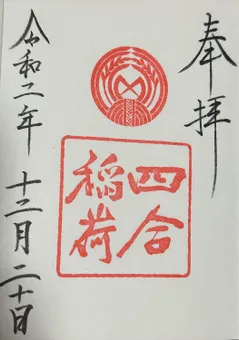 奉拝
四合
稲荷
令和二年 十二月二十日